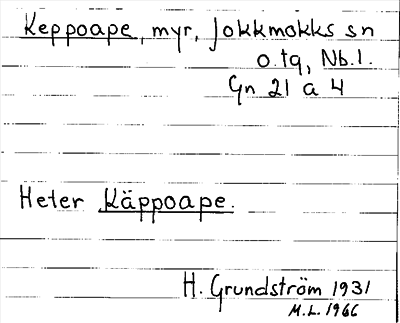 Keppoape, myr, Jokkmokks sn
o. tg, Nb.l.
Gn 21 a 4
Heter Käppoape.
H. Grundström 1931
M.L. 1966